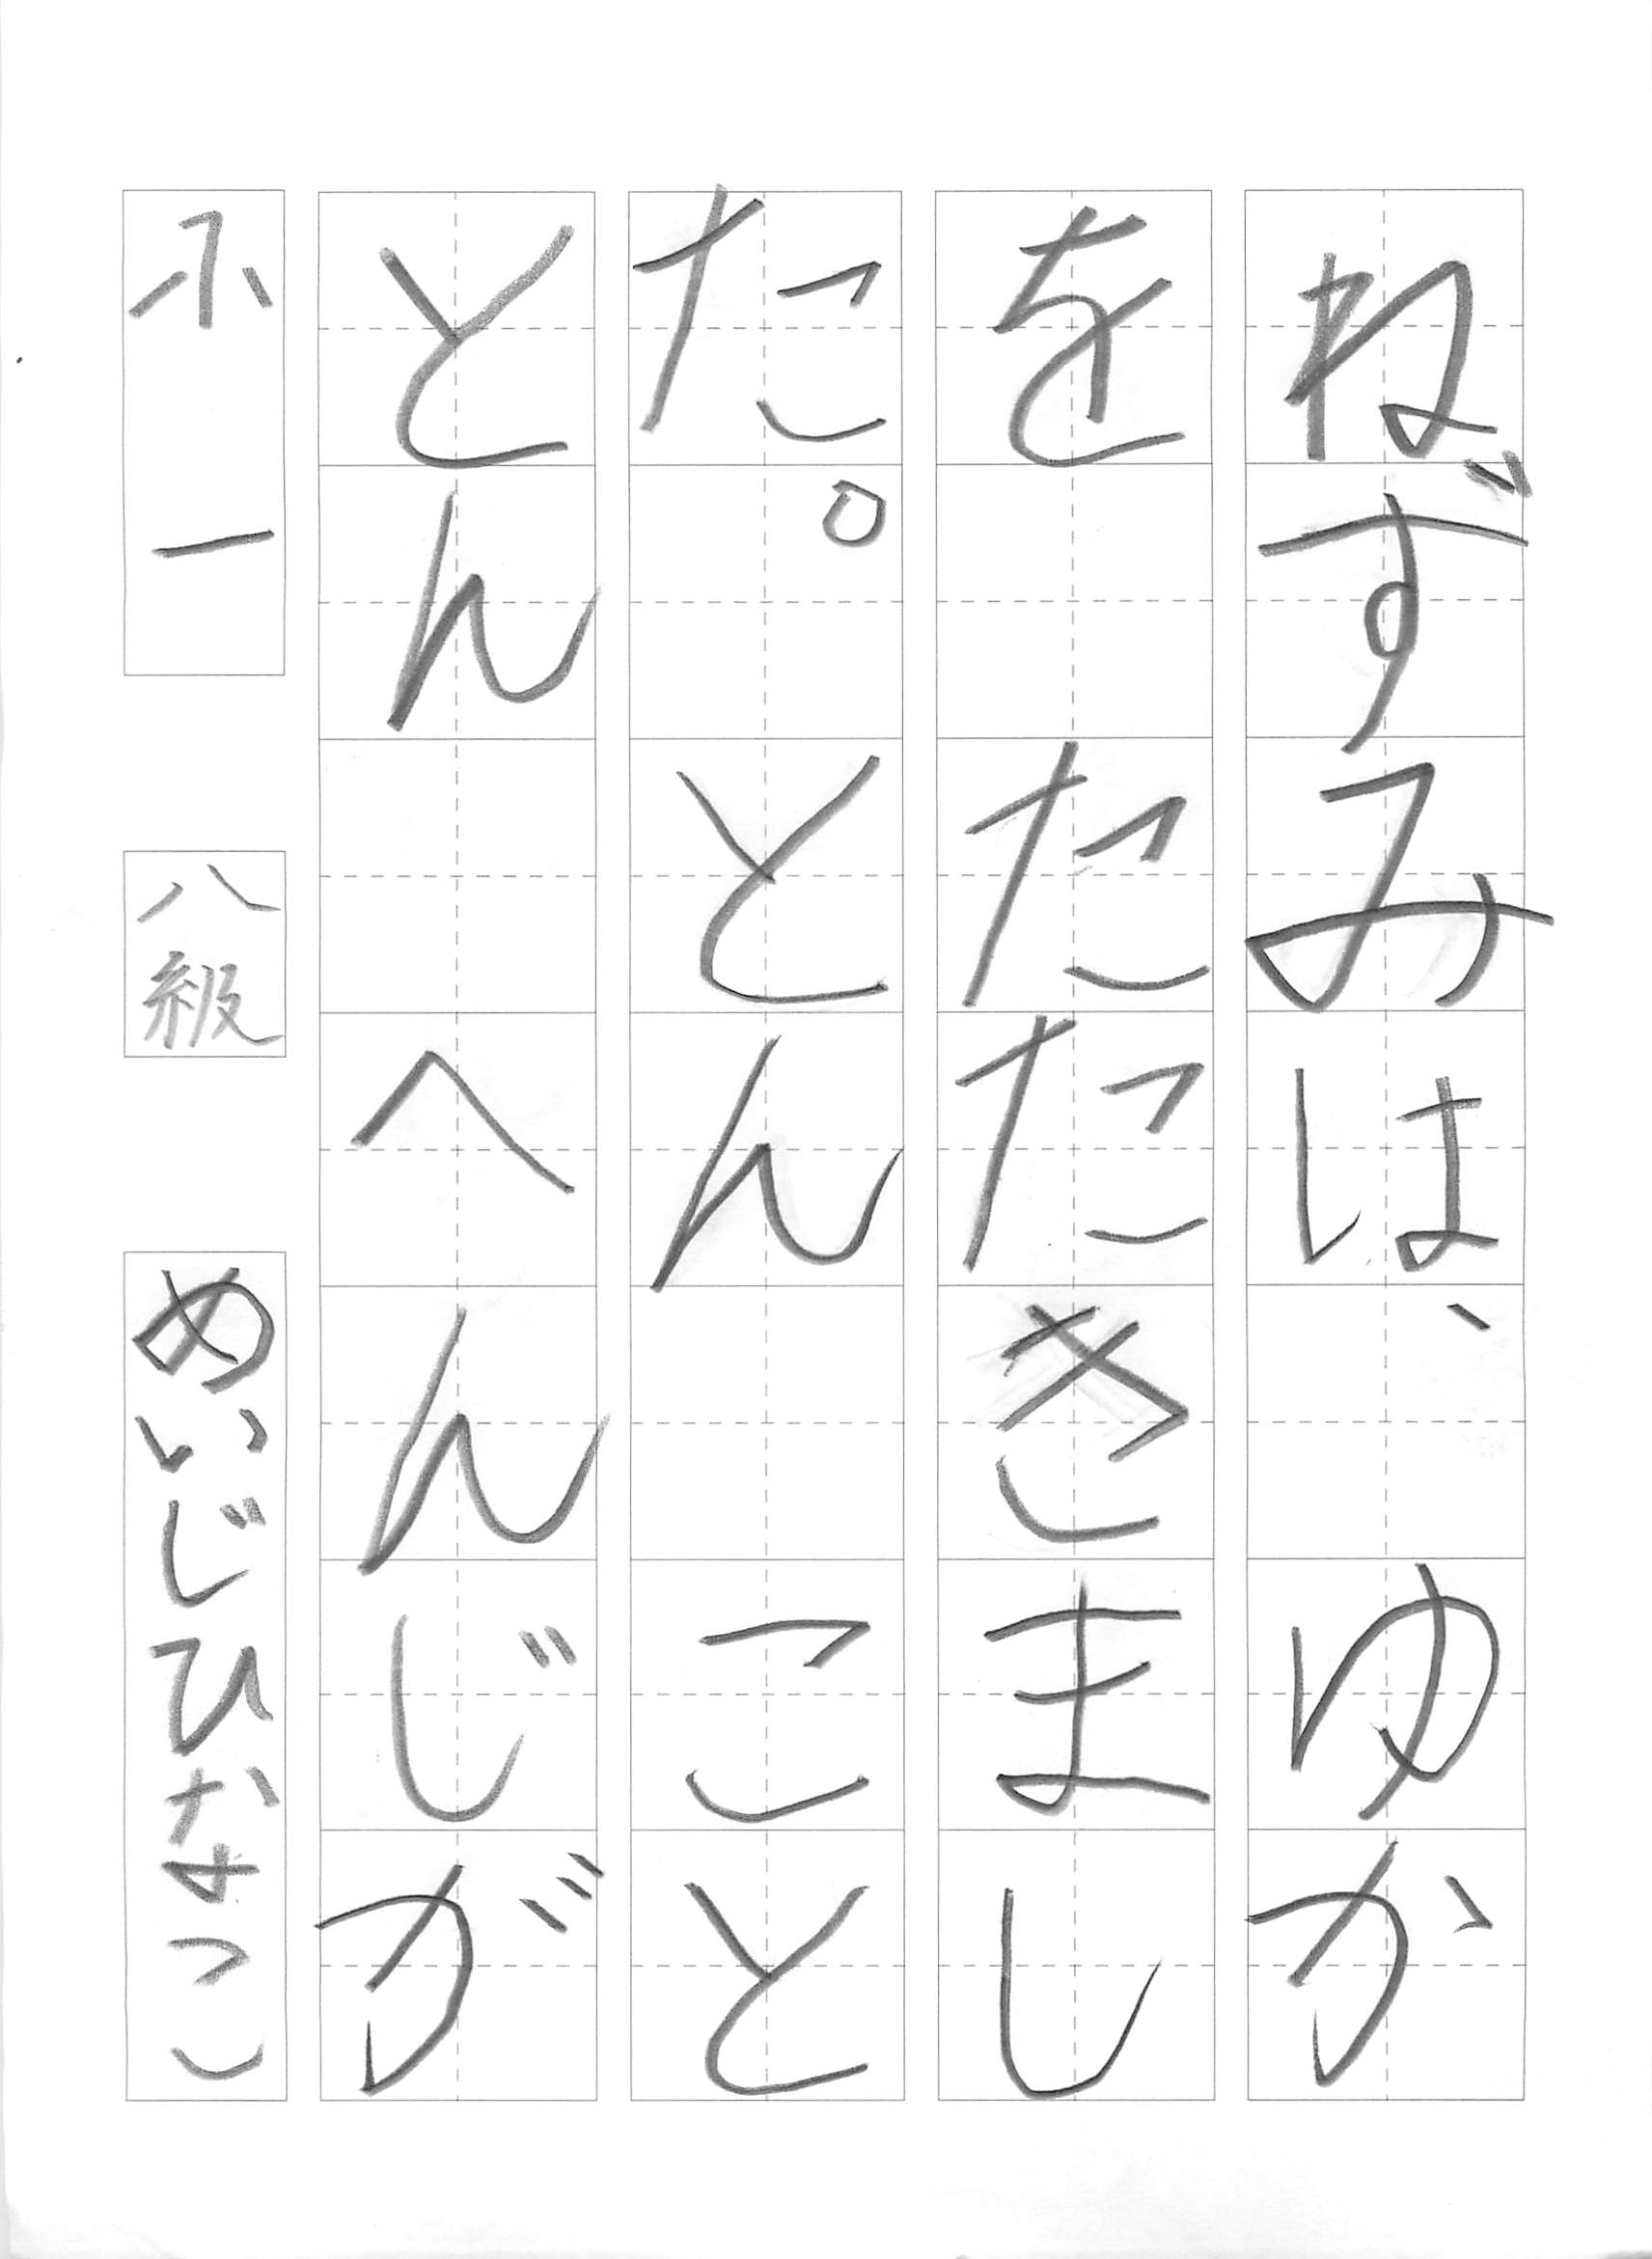 ねずみは、ゆか
をたたきまし
た。とんこと
とんへんじが
小一 八級 めいじひなこ